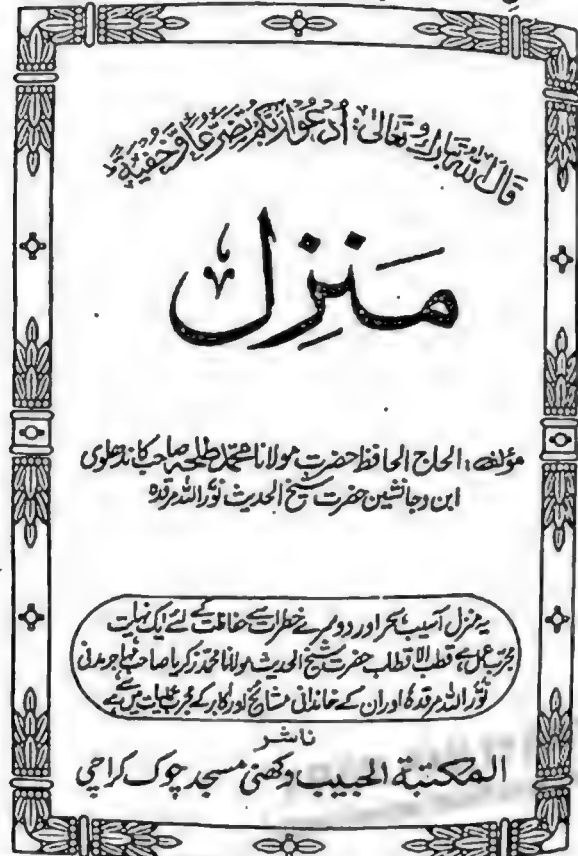 قَالَ اللّٰهُ تَبَارَكَ وَتَعَالٰى: اُدْعُوْا رَبَّكُمْ تَضَرُّعًا وَّخُفْيَةً
مَنزِل
مؤلفہ: الحاج الحافظ حضرت مولانا محمد طلحہ صاحب کاندھلوی
ابن و جانشین حضرت شیخ الحدیث نوّر اللہ مرقدہ
یہ منزل آسیب سحر اور دوسرے خطرات سے حفاظت کے لئے ایک نہایت
مجرّب عمل ہے قطب الاقطاب حضرت شیخ الحدیث مولانا محمد زکریا صاحب مہاجر مدنی
نوّر اللہ مرقدہٗ اور ان کے خاندانی مشائخ اور اکابر کے مجرب عملیات میں سے ہے
ناشر
المکتبۃ الحبیب دکھنی مسجد چوک کراچی